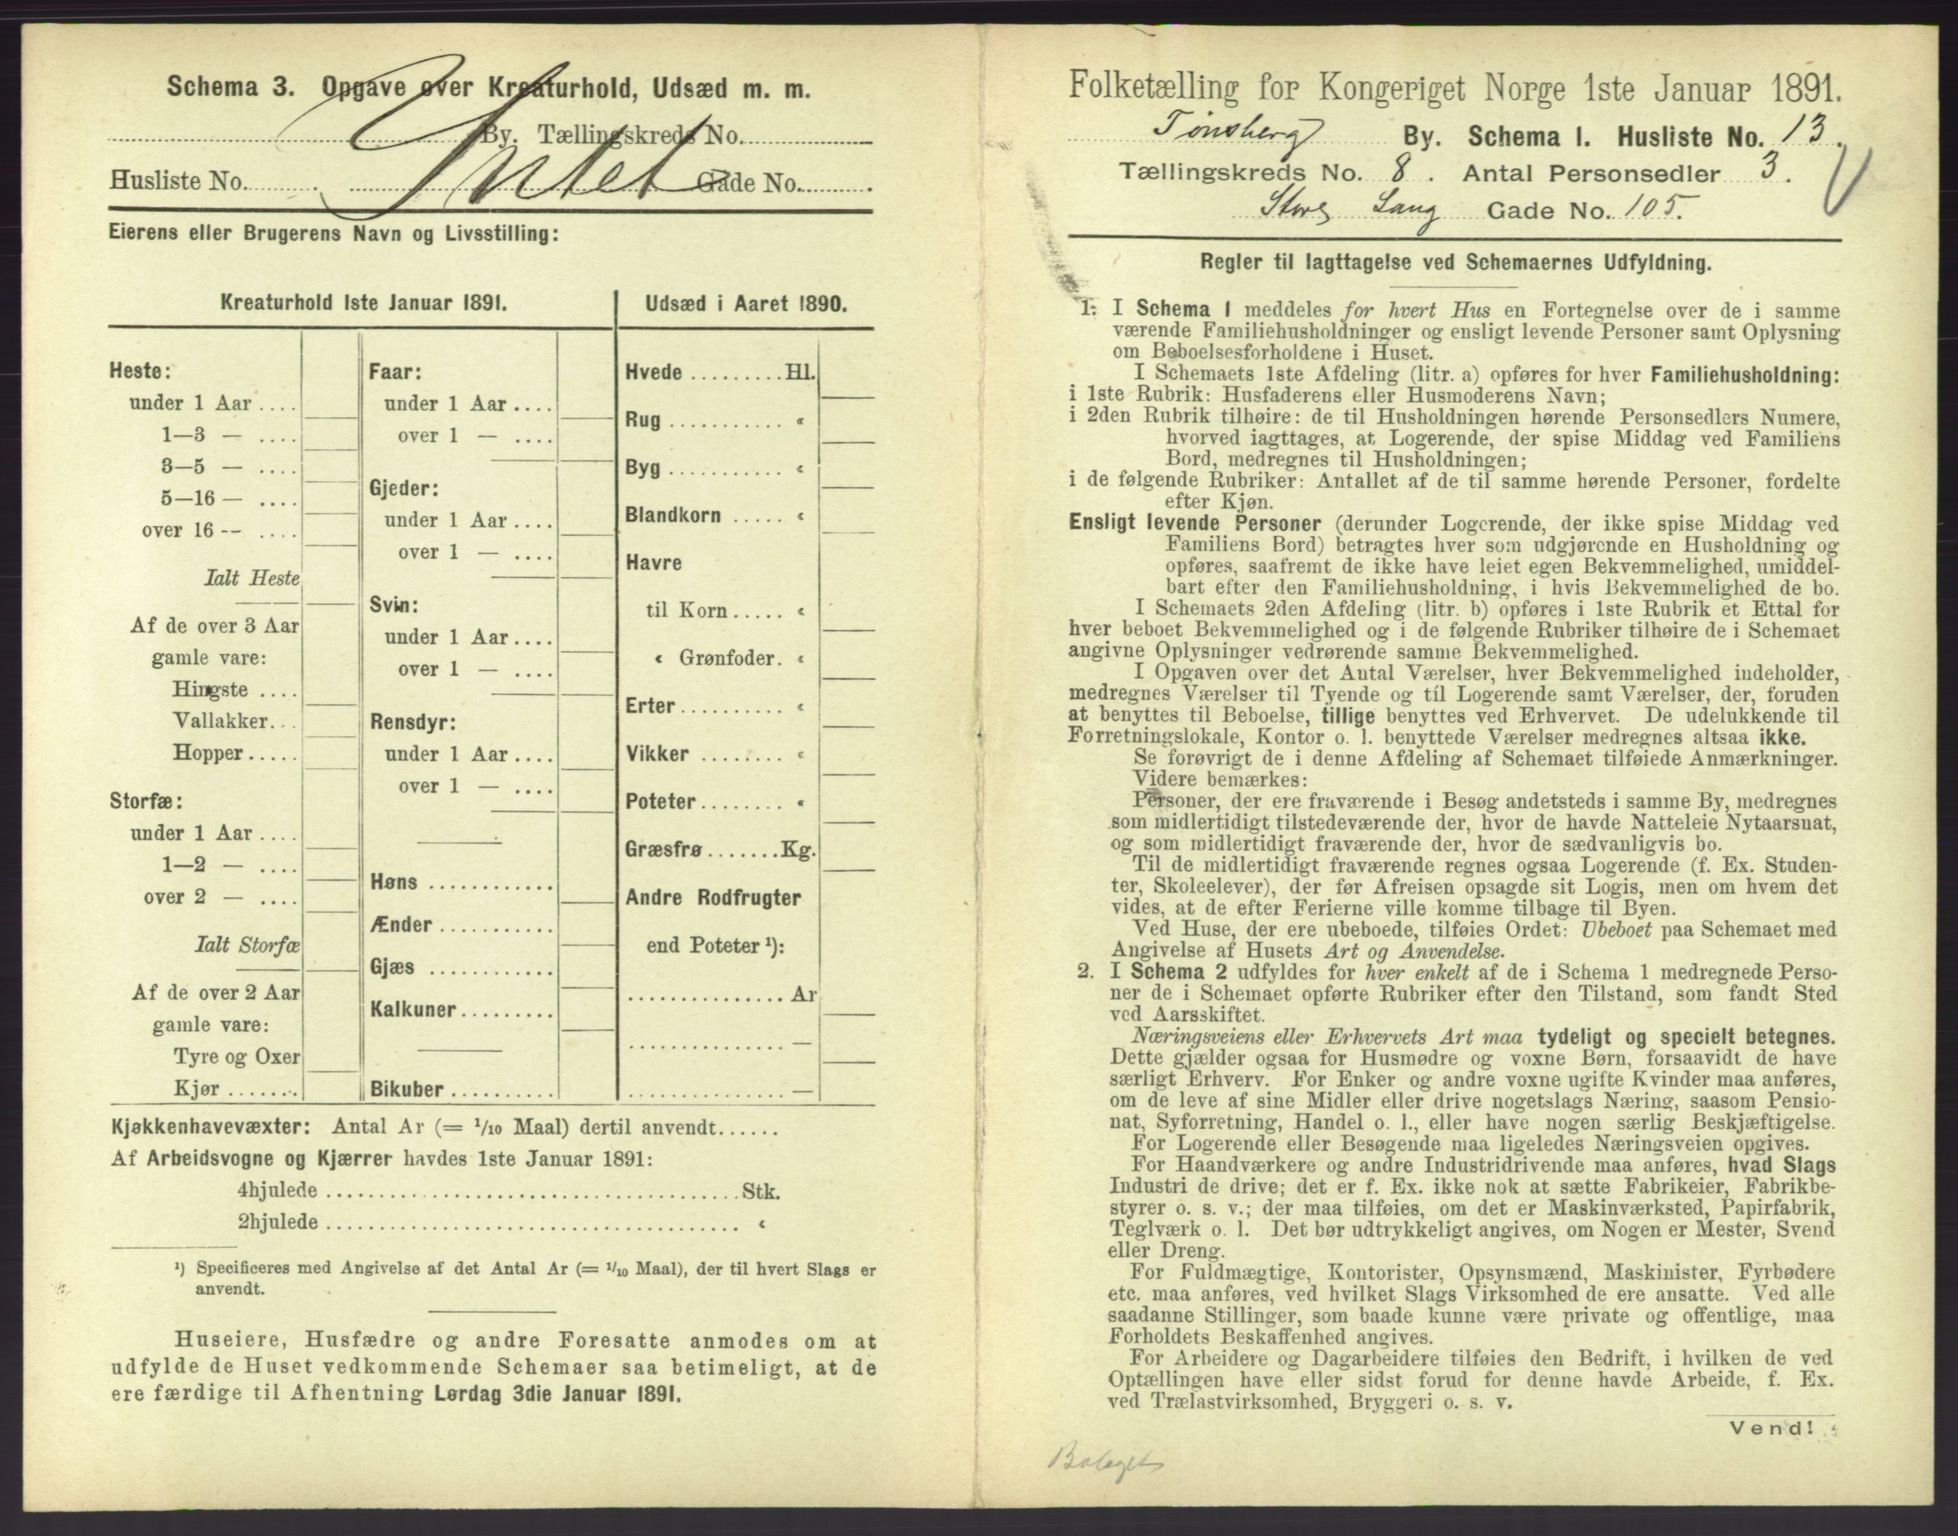 Schema 3. Opgave over Kreaturhold, Udsæd m. m.
By. Tællingskreds No.
Husliste No. Gade No.
Intet
Eierens eller Brugerens Navn og Livsstilling:
Kreaturhold 1ste Januar 1891.
Heste:
under 1 Aar ....
1—3 — ....
3—5 — ....
5—16 — ....
over 16 -- ....
Ialt Heste
Af de over 3 Aar
gamle vare:
Hingste ....
Vallakker...
Hopper.....
Storfæ:
under 1 Aar ....
1—2 — ....
over 2 — ....
Ialt Storfæ
Af de over 2 Aar
gamle vare:
Tyre og Oxer
Kjør .......
Faar:
under 1 Aar ....
over 1 — ....
Gjeder:
under 1 Aar ....
over 1 — ....
Svin:
under 1 Aar ....
over 1 — ....
Rensdyr:
under 1 Aar ....
over 1 — ....
Høns ............
Ænder ...........
Gjæs ............
Kalkuner.........
Bikuber ..........
Udsæd i Aaret 1890.
Hvede .........Hl.
Rug ........... «
Byg ........... «
Blandkorn ..... «
Havre
til Korn ..... «
« Grønfoder. «
Erter.......... «
Vikker ........ «
Poteter........ «
Græsfrø.......Kg.
Andre Rodfrugter
end Poteter ¹):
............... Ar
............... —
............... —
Kjøkkenhavevæxter: Antal Ar (= 1/10 Maal) dertil anvendt......
Af Arbeidsvogne og Kjærrer havdes 1ste Januar 1891:
4hjulede ........................................Stk.
2hjulede ........................................ «
¹) Specificeres med Angivelse af det Antal Ar (= 1/10 Maal), der til hvert Slags er
anvendt.
Huseiere, Husfædre og andre Foresatte anmodes om at
udfylde de Huset vedkommende Schemaer saa betimeligt, at de
ere færdige til Afhentning Lørdag 3die Januar 1891.
Folketælling for Kongeriget Norge 1ste Januar 1891.
Tønsberg By. Schema I. Husliste No. 13.
Tællingskreds No. 8. Antal Personsedler 3.
Store Lang Gade No. 105.
Regler til Iagttagelse ved Schemaernes Udfyldning.
1. I Schema I meddeles for hvert Hus en Fortegnelse over de i samme
værende Familiehusholdninger og ensligt levende Personer samt Oplysning
om Beboelsesforholdene i Huset.
I Schemaets 1ste Afdeling (litr. a) opføres for hver Familiehusholdning:
i 1ste Rubrik: Husfaderens eller Husmoderens Navn;
i 2den Rubrik tilhøire: de til Husholdningen hørende Personsedlers Numere,
hvorved iagttages, at Logerende, der spise Middag ved Familiens
Bord, medregnes til Husholdningen;
i de følgende Rubriker: Antallet af de til samme hørende Personer, fordelte
efter Kjøn.
Ensligt levende Personer (derunder Logerende, der ikke spise Middag ved
Familiens Bord) betragtes hver som udgjørende en Husholdning og
opføres, saafremt de ikke have leiet egen Bekvemmelighed, umiddel-
bart efter den Familiehusholdning, i hvis Bekvemmelighed de bo.
I Schemaets 2den Afdeling (litr. b) opføres i 1ste Rubrik et Ettal for
hver beboet Bekvemmelighed og i de følgende Rubriker tilhøire de i Schemaet
angivne Oplysninger vedrørende samme Bekvemmelighed.
I Opgaven over det Antal Værelser, hver Bekvemmelighed indeholder,
medregnes Værelser til Tyende og til Logerende samt Værelser, der, foruden
at benyttes til Beboelse, tillige benyttes ved Erhvervet. De udelukkende til
Forretningslokale, Kontor o. l. benyttede Værelser medregnes altsaa ikke.
Se forøvrigt de i denne Afdeling af Schemaet tilføiede Anmærkninger.
Videre bemærkes:
Personer, der ere fraværende i Besøg andetsteds i samme By, medregnes
som midlertidigt tilstedeværende der, hvor de havde Natteleie Nytaarsnat,
og som midlertidigt fraværende der, hvor de sædvanligvis bo.
Til de midlertidigt fraværende regnes ogsaa Logerende (f. Ex. Studen-
ter, Skoleelever), der før Afreisen opsagde sit Logis, men om hvem det
vides, at de efter Ferierne ville komme tilbage til Byen.
Ved Huse, der ere ubeboede, tilføies Ordet: Ubeboet paa Schemaet med
Angivelse af Husets Art og Anvendelse.
2. I Schema 2 udfyldes for hver enkelt af de i Schema 1 medregnede Perso-
ner de i Schemaet opførte Rubriker efter den Tilstand, som fandt Sted
ved Aarsskiftet.
Næringsveiens eller Erhvervets Art maa tydeligt og specielt betegnes.
Dette gjælder ogsaa for Husmødre og voxne Børn, forsaavidt de have
særligt Erhverv. For Enker og andre voxne ugifte Kvinder maa anføres,
om de leve af sine Midler eller drive nogetslags Næring, saasom Pensio-
nat, Syforretning, Handel o. l., eller have nogen særlig Beskjæftigelse.
For Logerende eller Besøgende maa ligeledes Næringsveien opgives.
For Haandværkere og andre Industridrivende maa anføres, hvad Slags
Industri de drive; det er f. Ex. ikke nok at sætte Fabrikeier, Fabrikbe-
styrer o. s. v.; der maa tilføies, om det er Maskinværksted, Papirfabrik,
Teglværk o. l. Det bør udtrykkeligt angives, om Nogen er Mester, Svend
eller Dreng.
For Fuldmægtige, Kontorister, Opsynsmænd, Maskinister, Fyrbødere
etc. maa anføres, ved hvilket Slags Virksomhed de ere ansatte. Ved alle
saadanne Stillinger, som baade kunne være private og offentlige, maa
Forholdets Beskaffenhed angives.
For Arbeidere og Dagarbeidere tilføies den Bedrift, i hvilken de ved
Optællingen have eller sidst forud for denne havde Arbeide, f. Ex.
ved Trælastvirksomhed, Bryggeri o. s. v.
Vend!